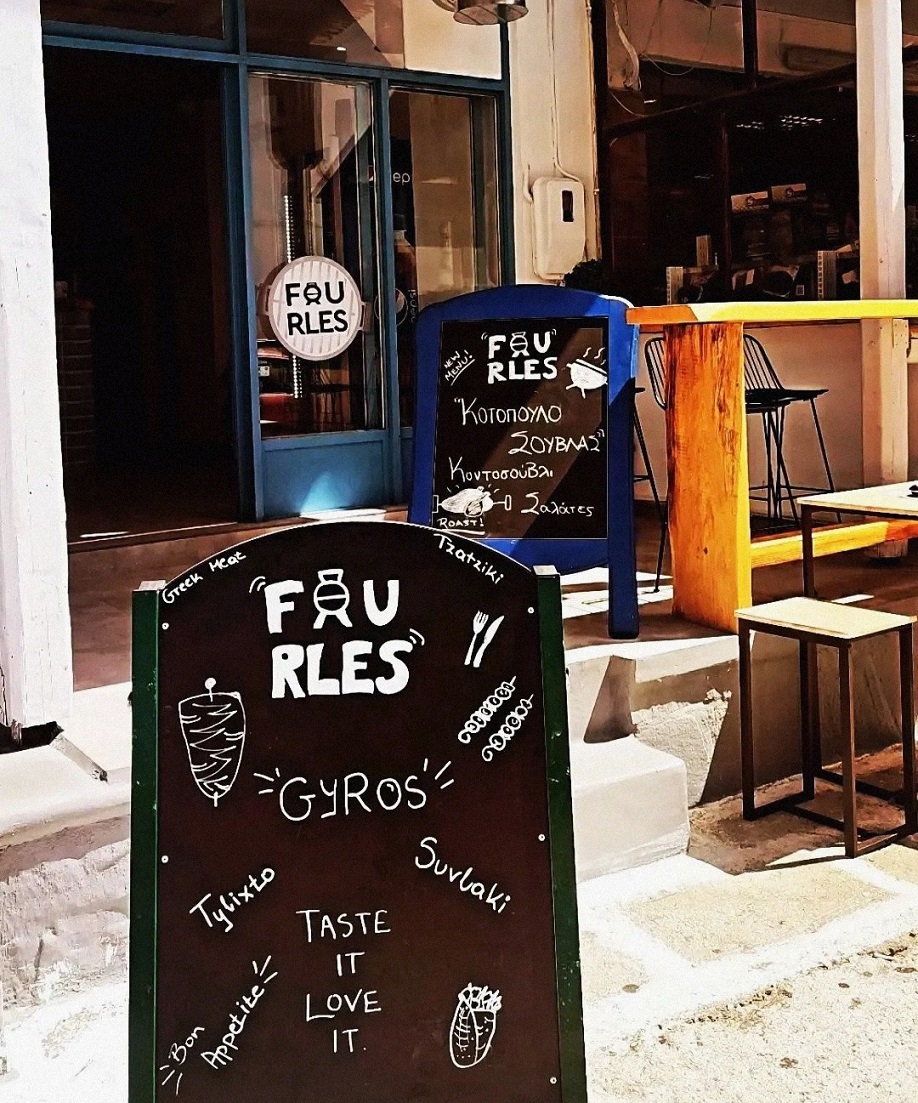 FOU
RLES
ep
NEW
MENU!
"FOU"
RLES
"ΚΟΤΟΠΟΥΛΟ
ΣΟΥΒΛΑΣ"
Κοντοσούβλι
ROAST!
Σαλάτες
Greek Meat
Tzatziki
"FOU
RLES"
"GYROS"
Tylixto
Suvlaki
TASTE
IT
LOVE
IT.
Bon
Appetite